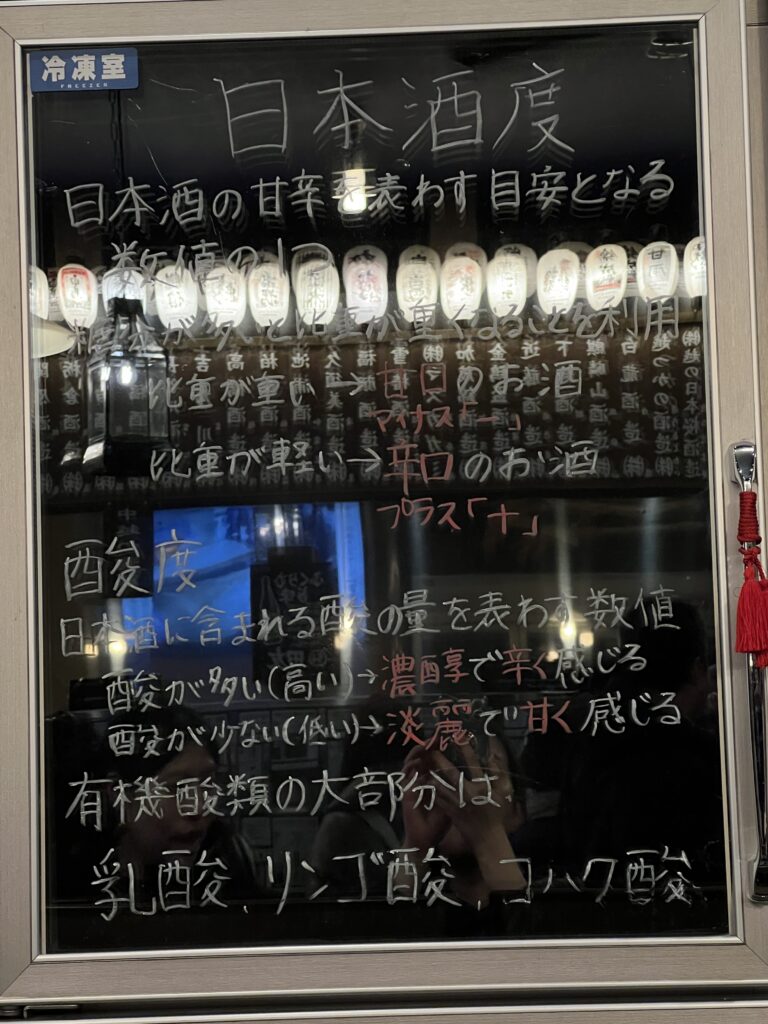 冷凍室
FREEZER
日本酒度
日本酒の甘辛を表わす目安となる
数値の1つ
糖分が多いと比重が重くなることを利用
比重が重い→甘口のお酒
マイナス「－」
比重が軽い→辛口のお酒
プラス「＋」
酸度
日本酒に含まれる酸の量を表わす数値
酸が多い(高い)→濃醇で辛く感じる
酸が少ない(低い)→淡麗で甘く感じる
有機酸類の大部分は
乳酸、リンゴ酸、コハク酸